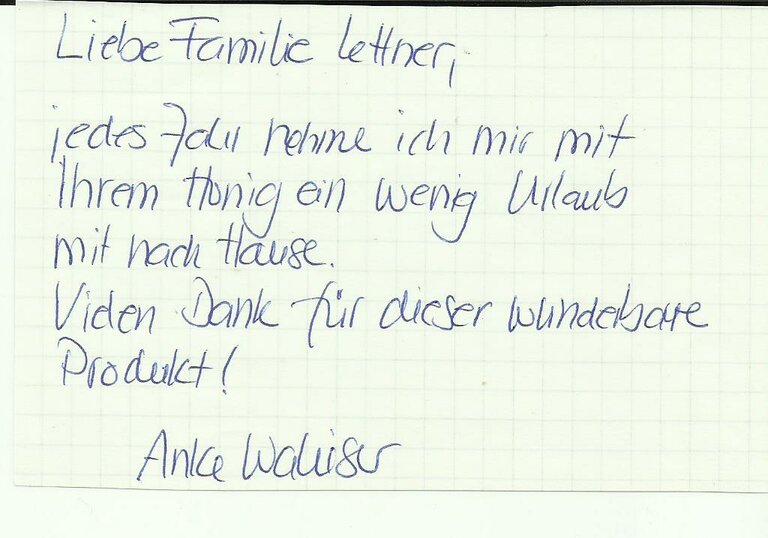 Liebe Familie Lettner,
jedes Jahr nehme ich mir mit
Ihrem Honig ein wenig Urlaub
mit nach Hause.
Vielen Dank für dieser wunderbare
Produkt!
Anke